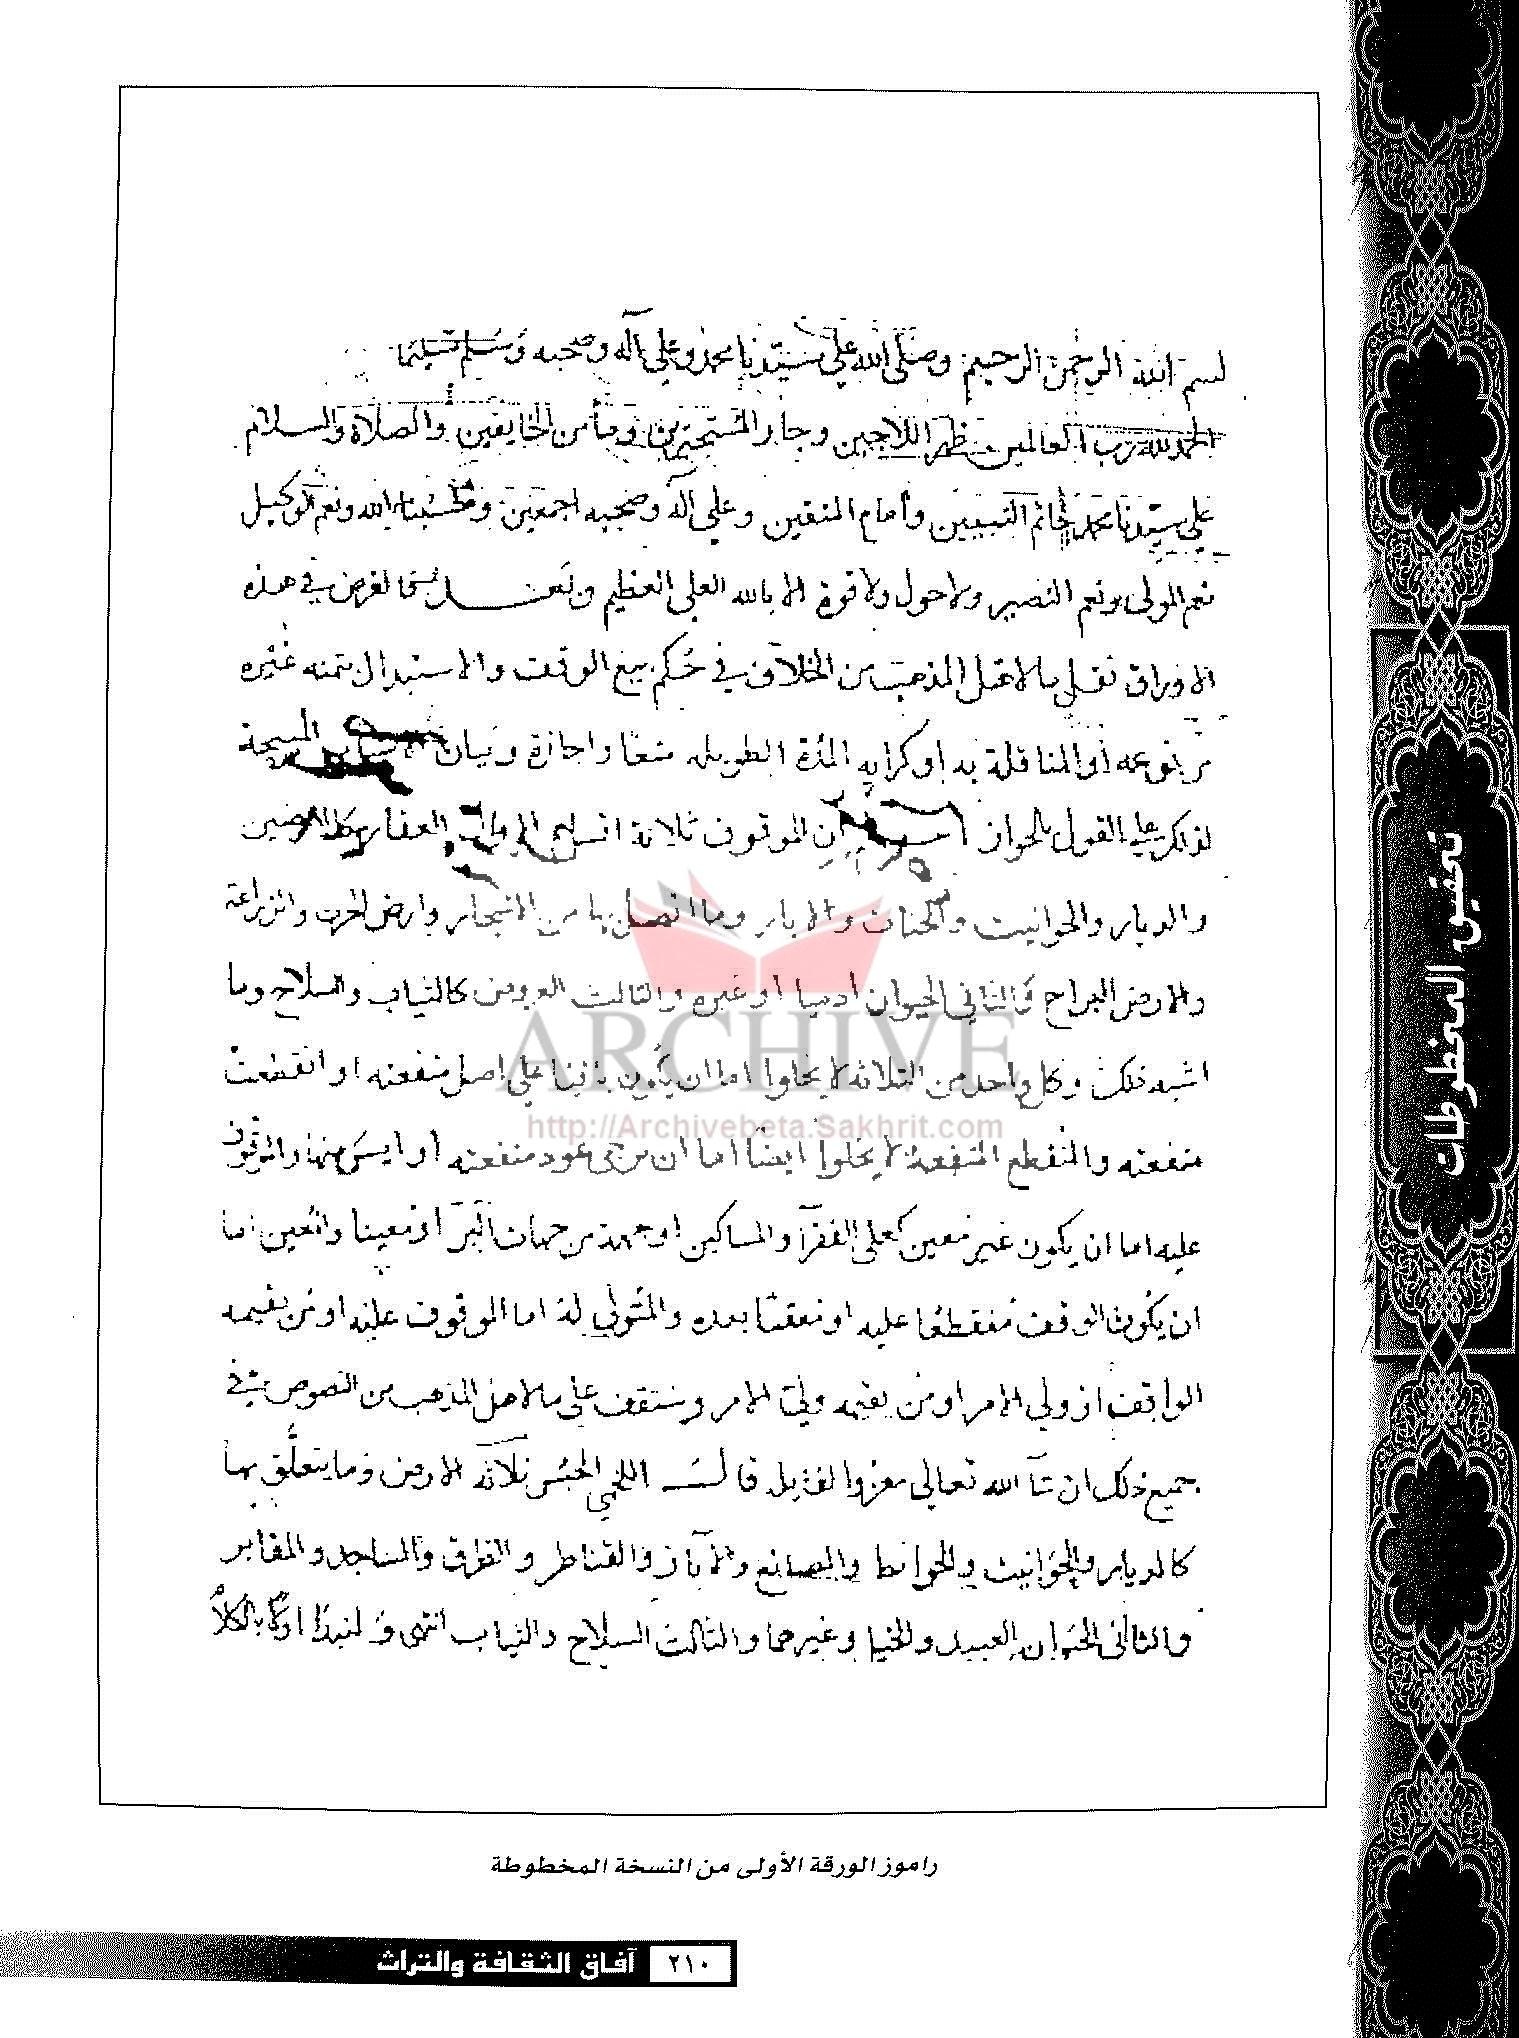 بسم الله الرحمن الرحيم وصلى الله على سيدنا محمد وعلى آله وصحبه وسلم تسليما
الحمد لله رب العالمين ظهر اللاجين وجار المستجيرين ومأمن الخايفين والصلاة والسلام
على سيدنا محمد خاتم النبيين وأمام المتقين وعلى آله وصحبه اجمعين وحسبنا الله ونعم الوكيل
نعم المولى ونعم النصير ولا حول ولا قوة الا بالله العلى العظيم وبعد فالغرض في هذه
الاوراق نقل ما لاهل المذهب من الخلاف في حكم بيع الوقف والاستبدال بثمنه غيره
من نوعه أو المناقلة به او كرايه المدة الطويله منعا واجازة وبيان الاسباب المبيحة
لذلك على القول بالجواز ان الموقوف ثلاثة اقسام العقار كالارضين
والديار والحوانيت والجنات والابار وما اتصل بها من الاشجار وارض الحرث والزراعة
والارض البراح والثاني الحيوان ادميا او غيره والثالث العروض كالثياب والسلاح وما
اشبه ذلك وكل واحد من الثلاثه لا يخلوا اما ان يكون باقيا على اصل منفعته او انقطعت
منفعته والمنقطع المنفعة لا يخلوا ايضا اما ان يرجى عود منفعته او ايس منها والموقوف
عليه اما ان يكون غير معين كعلى الفقرآ والمساكين او جهة من جهات البر او معينا والمعين اما
ان يكون الوقف منقطعا عليه او معقبا بعده والمتولي له اما الموقوف عليه او من يقيمه
الواقف او ولي الامر او من يقيمه ولي الامر وستقف على ما لاهل المذهب من النصوص في
جميع ذلك ان شآ الله تعالى معزوا لقايله قال اللخمي الحبس ثلاثه الارض وما يتعلق بها
كالديار والحوانيت والحوائط والمصانع والآبار والقناطر والطرق والمساجد والمقابر
والثانى الحيوان العبيد والخيل وغيرهما والثالث السلاح والثياب انتهى ولنبدا اولا بالكلام
ARCHIVE
http://Archivebeta.Sakhrit.com
تحقيق المخطوطات
راموز الورقة الأولى من النسخة المخطوطة
٢١٠ آفاق الثقافة والتراث